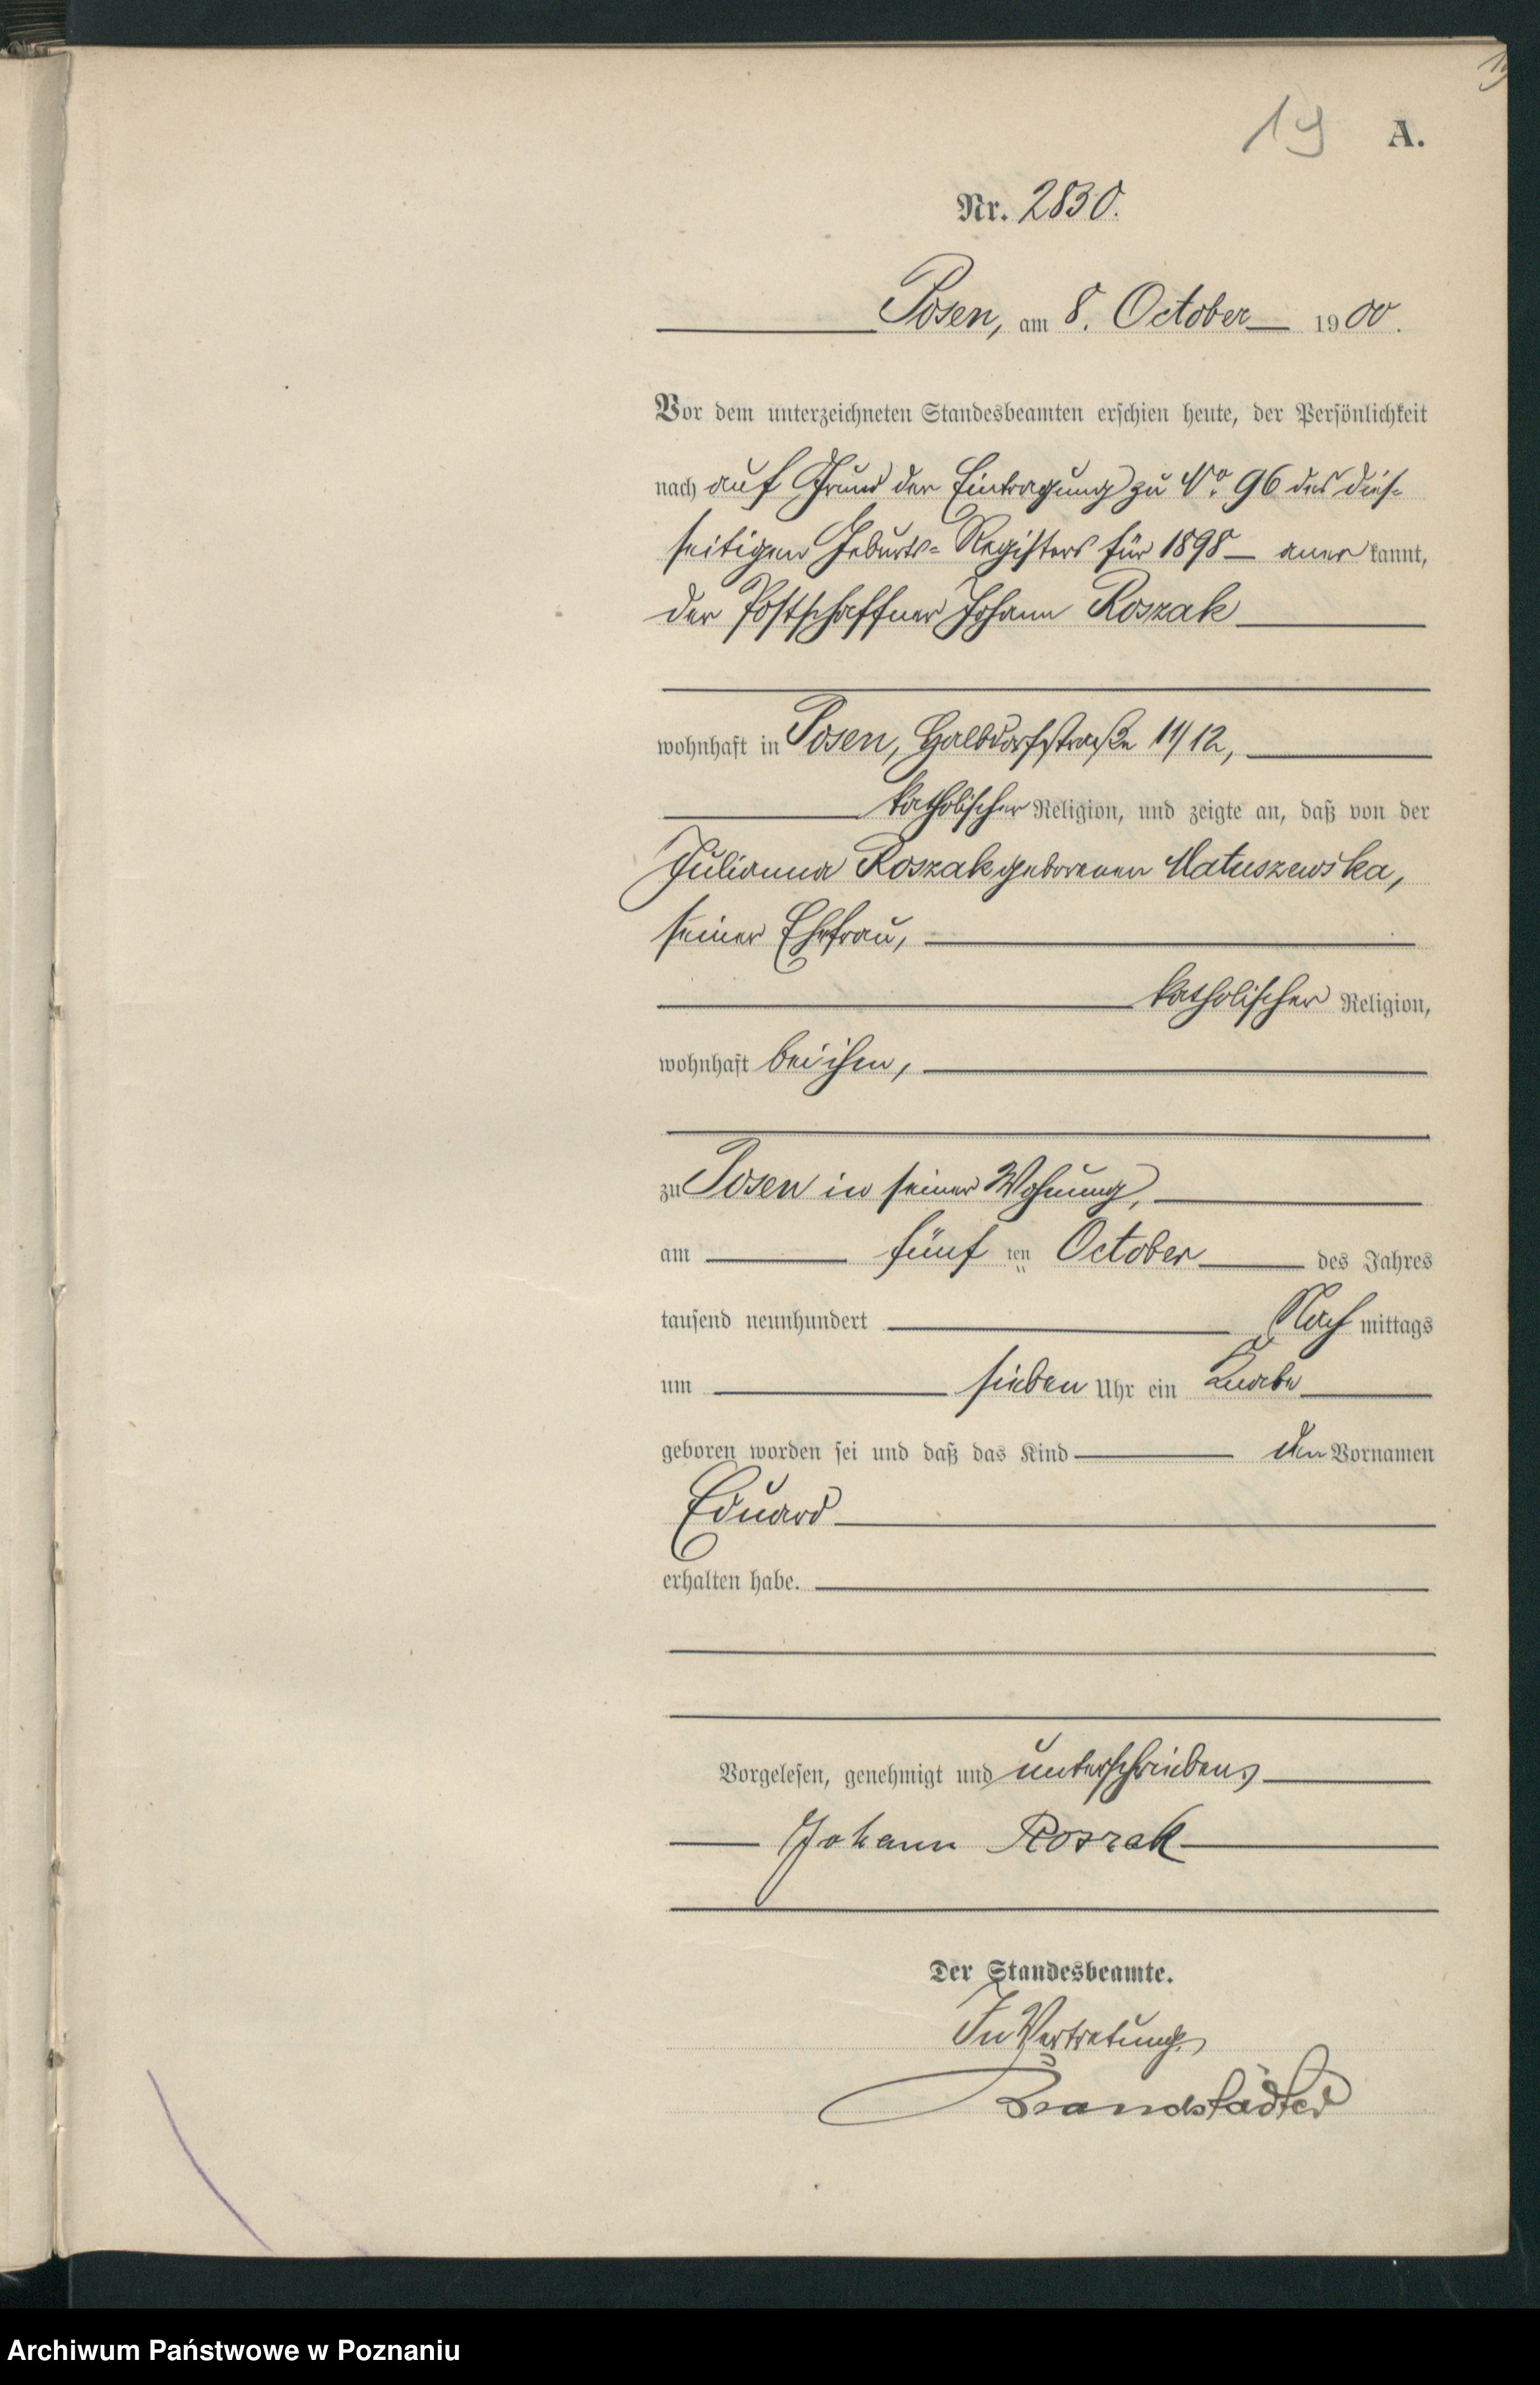 19 A.
Nr. 2830.
Posen, am 8. October 1900.
Vor dem unterzeichneten Standesbeamten erschien heute, der Persönlichkeit
nach auf Grund der Eintragung zu No. 96 des dies-
seitigen Geburts-Registers für 1898 – anerkannt,
der Postschaffner Johann Roszak
wohnhaft in Posen, Halbdorfstraße 11/12,
katholischer Religion, und zeigte an, daß von der
Julianna Roszak geborenen Matuszewska,
seiner Ehefrau,
katholischer Religion,
wohnhaft bei ihm,
zu Posen in seiner Wohnung,
am fünften October des Jahres
tausend neunhundert Nachmittags
um sieben Uhr ein Knabe
geboren worden sei und daß das Kind den Vornamen
Eduard
erhalten habe.
Vorgelesen, genehmigt und unterschrieben,
Johann Roszak
Der Standesbeamte.
In Vertretung.
Brandstädter
Archiwum Państwowe w Poznaniu